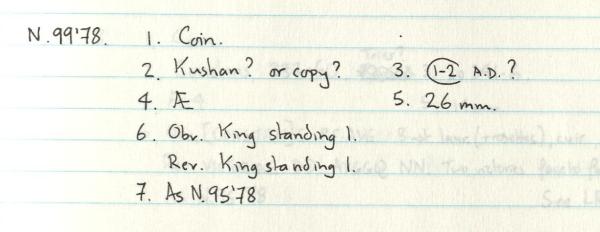 N.99'78. 1. Coin.
2. Kushan? or copy? 3. 1-2 A.D.?
4. Æ 5. 26 mm.
6. Obv. King standing l.
Rev. King standing l.
7. As N.95'78